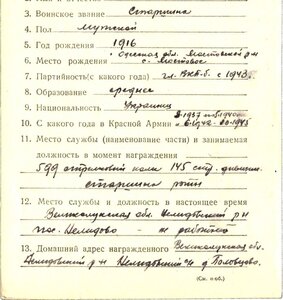 3. Воинское звание Старшина
4. Пол мужской
5. Год рождения 1916
6. Место рождения Одесская обл. Мостовской р-н
с. Мостовое
7. Партийность (с какого года) чл. ВКП(б) с 1943 г.
8. Образование среднее
9. Национальность Украинец
10. С какого года в Красной Армии
11. Место службы (наименование части) и занимаемая
должность в момент награждения
599 стрелковый полк 145 стр. дивизии
старшина роты
12. Место службы и должность в настоящее время
Великолукская обл. Нелидовский р-н
пос. Нелидово
13. Домашний адрес награжденного Великолукская обл.
Нелидовский р-н Нелидовский с/с д. Половцово.
(См. на об.)